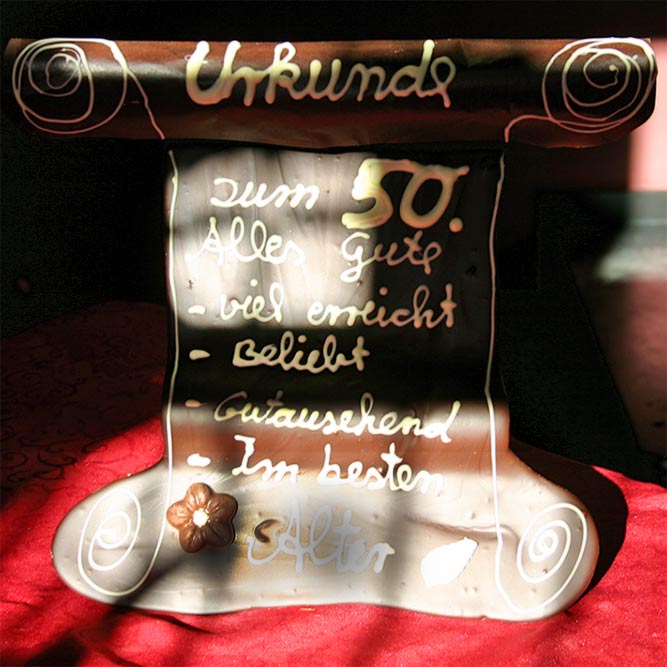 Urkunde
zum 50.
Alles Gute
- viel erreicht
- Beliebt
- Gutausehend
- Im besten
Alter